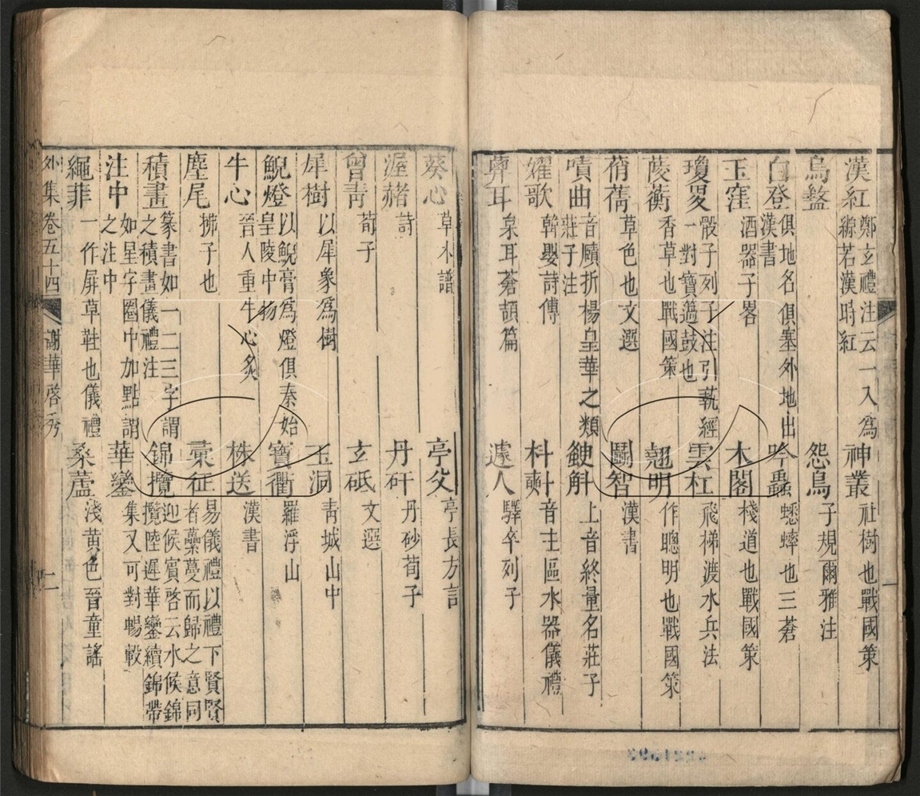 漢紅 鄭玄禮注云一入爲縓若漢時紅 神叢 社樹也戰國策
烏盩 怨鳥 子規爾雅注
白登 俱地名俱塞外地出漢書 吟蟲 蟋蟀也三蒼
玉窪 酒器子畧 木閣 棧道也戰國策
瓊㚆 骰子列子注引蓺經一對寶 鼓也 雲杠 飛梯渡水兵法
薐蘅 香草也戰國策 翹明 作聰明也戰國策
蒨 草色也文選 鬬智 漢書
嘳曲 音頤折楊皇華之類莊子注 䱎斛 上音終量名莊子
嬥歌 韓嬰詩傳 枓㪺 音主區水器儀禮
葬耳 枲耳蒼頡篇 遽人 驛卒列子
葵心 草木譜 亭父 亭長方言
渥赭 詩 丹矸 丹砂荀子
曾青 荀子 玄砥 文選
犀樹 以犀象爲樹 玉洞 青城山中
鯢燈 以鯢膏爲燈俱秦始皇陵中物 寶衢 羅浮山
牛心 晉人重牛心炙 株送 漢書
麈尾 拂子也 橐征 易儀禮以禮下賢賢者橐蔓而歸之意同
積畫 篆書如一二三字謂之積畫儀禮注 錦攬 迎候賓啓云水候錦攬陸遲華鑾續錦帶
注中 如星字圈中加點謂之注中 華鑾 集又可對暢轂
繩菲 一作屝草鞋也儀禮 桑蘆 淺黄色晉童謠
外集卷五十四 謝華啓秀 二